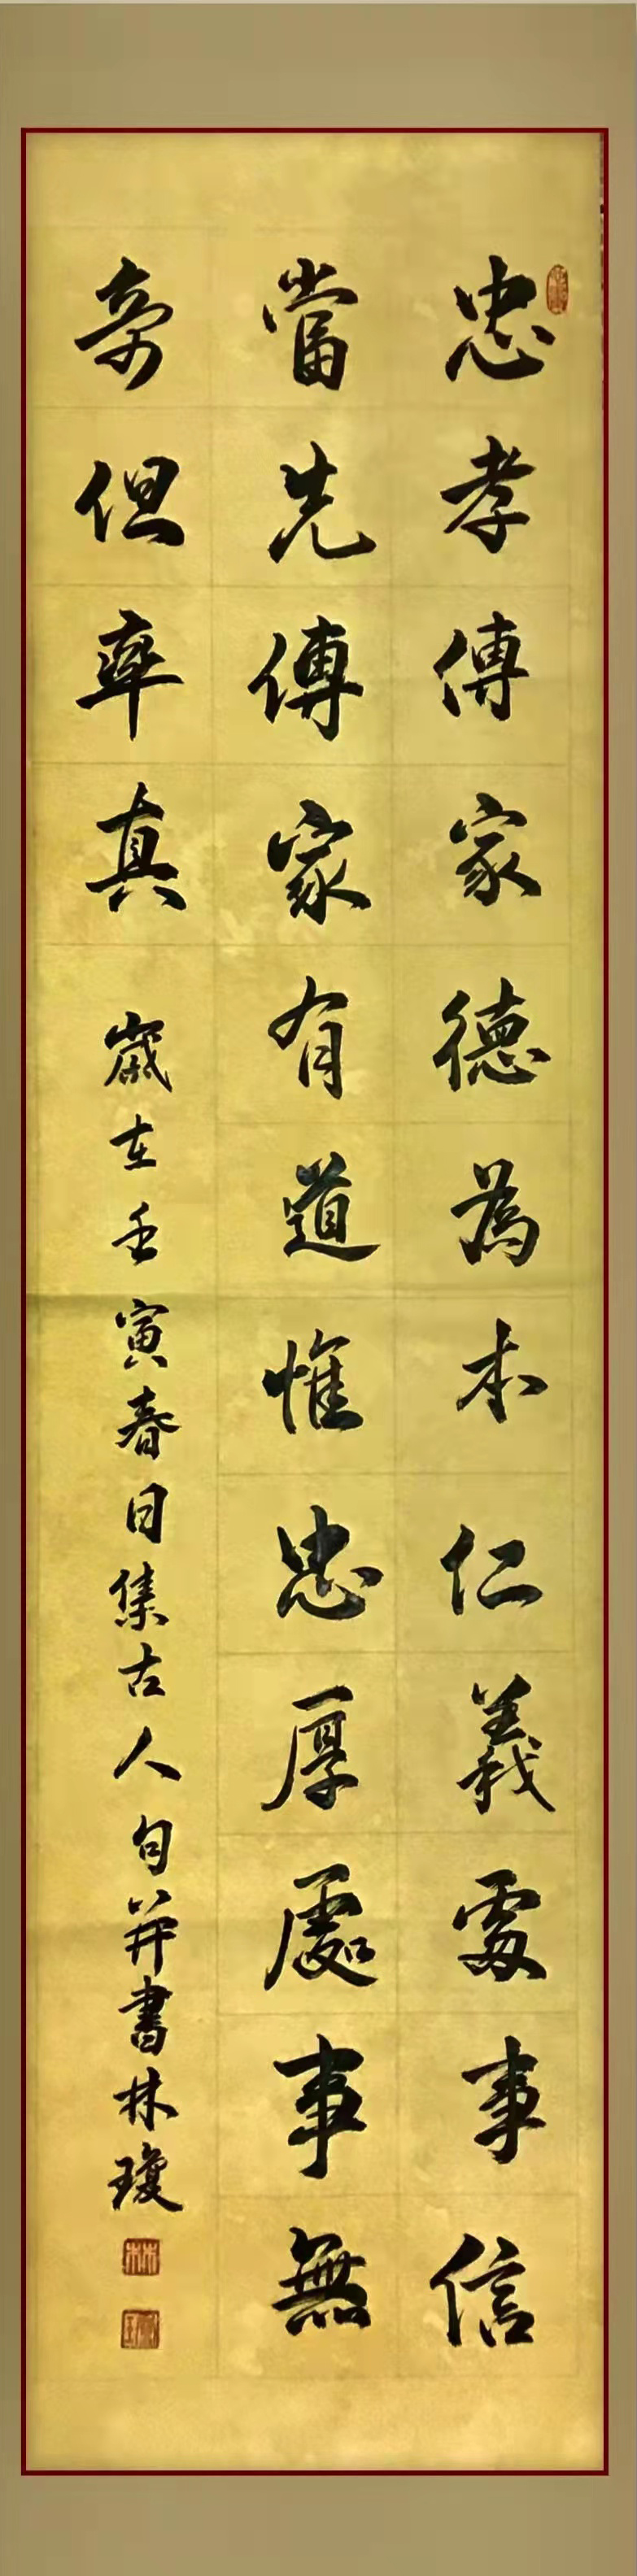 忠孝傳家德為本仁義處事信
當先傳家有道惟忠厚處事無
奇但率真 歲在壬寅春日集古人句並書林瓊